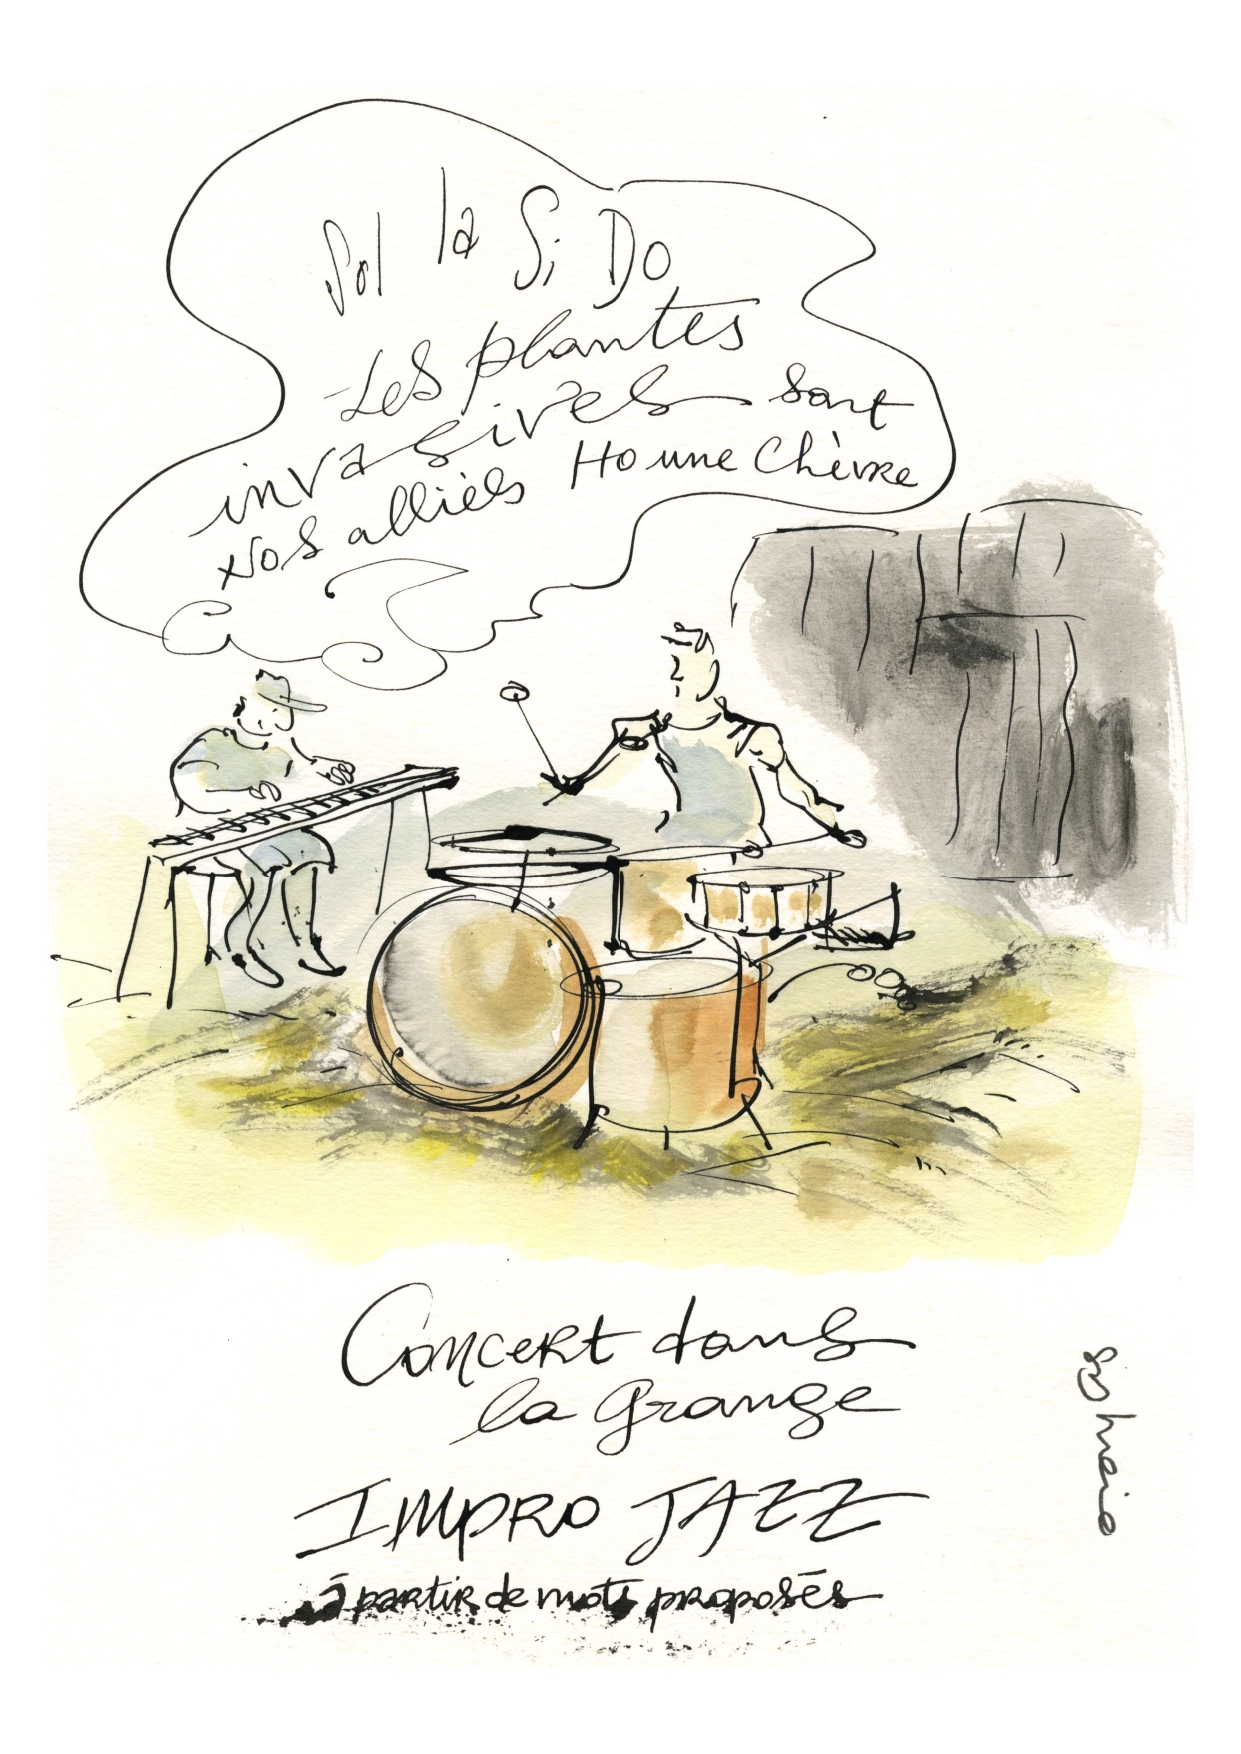 Sol la Si Do
Les plantes
invasives sont
Nos alliées Ho une Chèvre
Concert dans
la Grange
IMPRO JAZZ
à partir de mots proposés